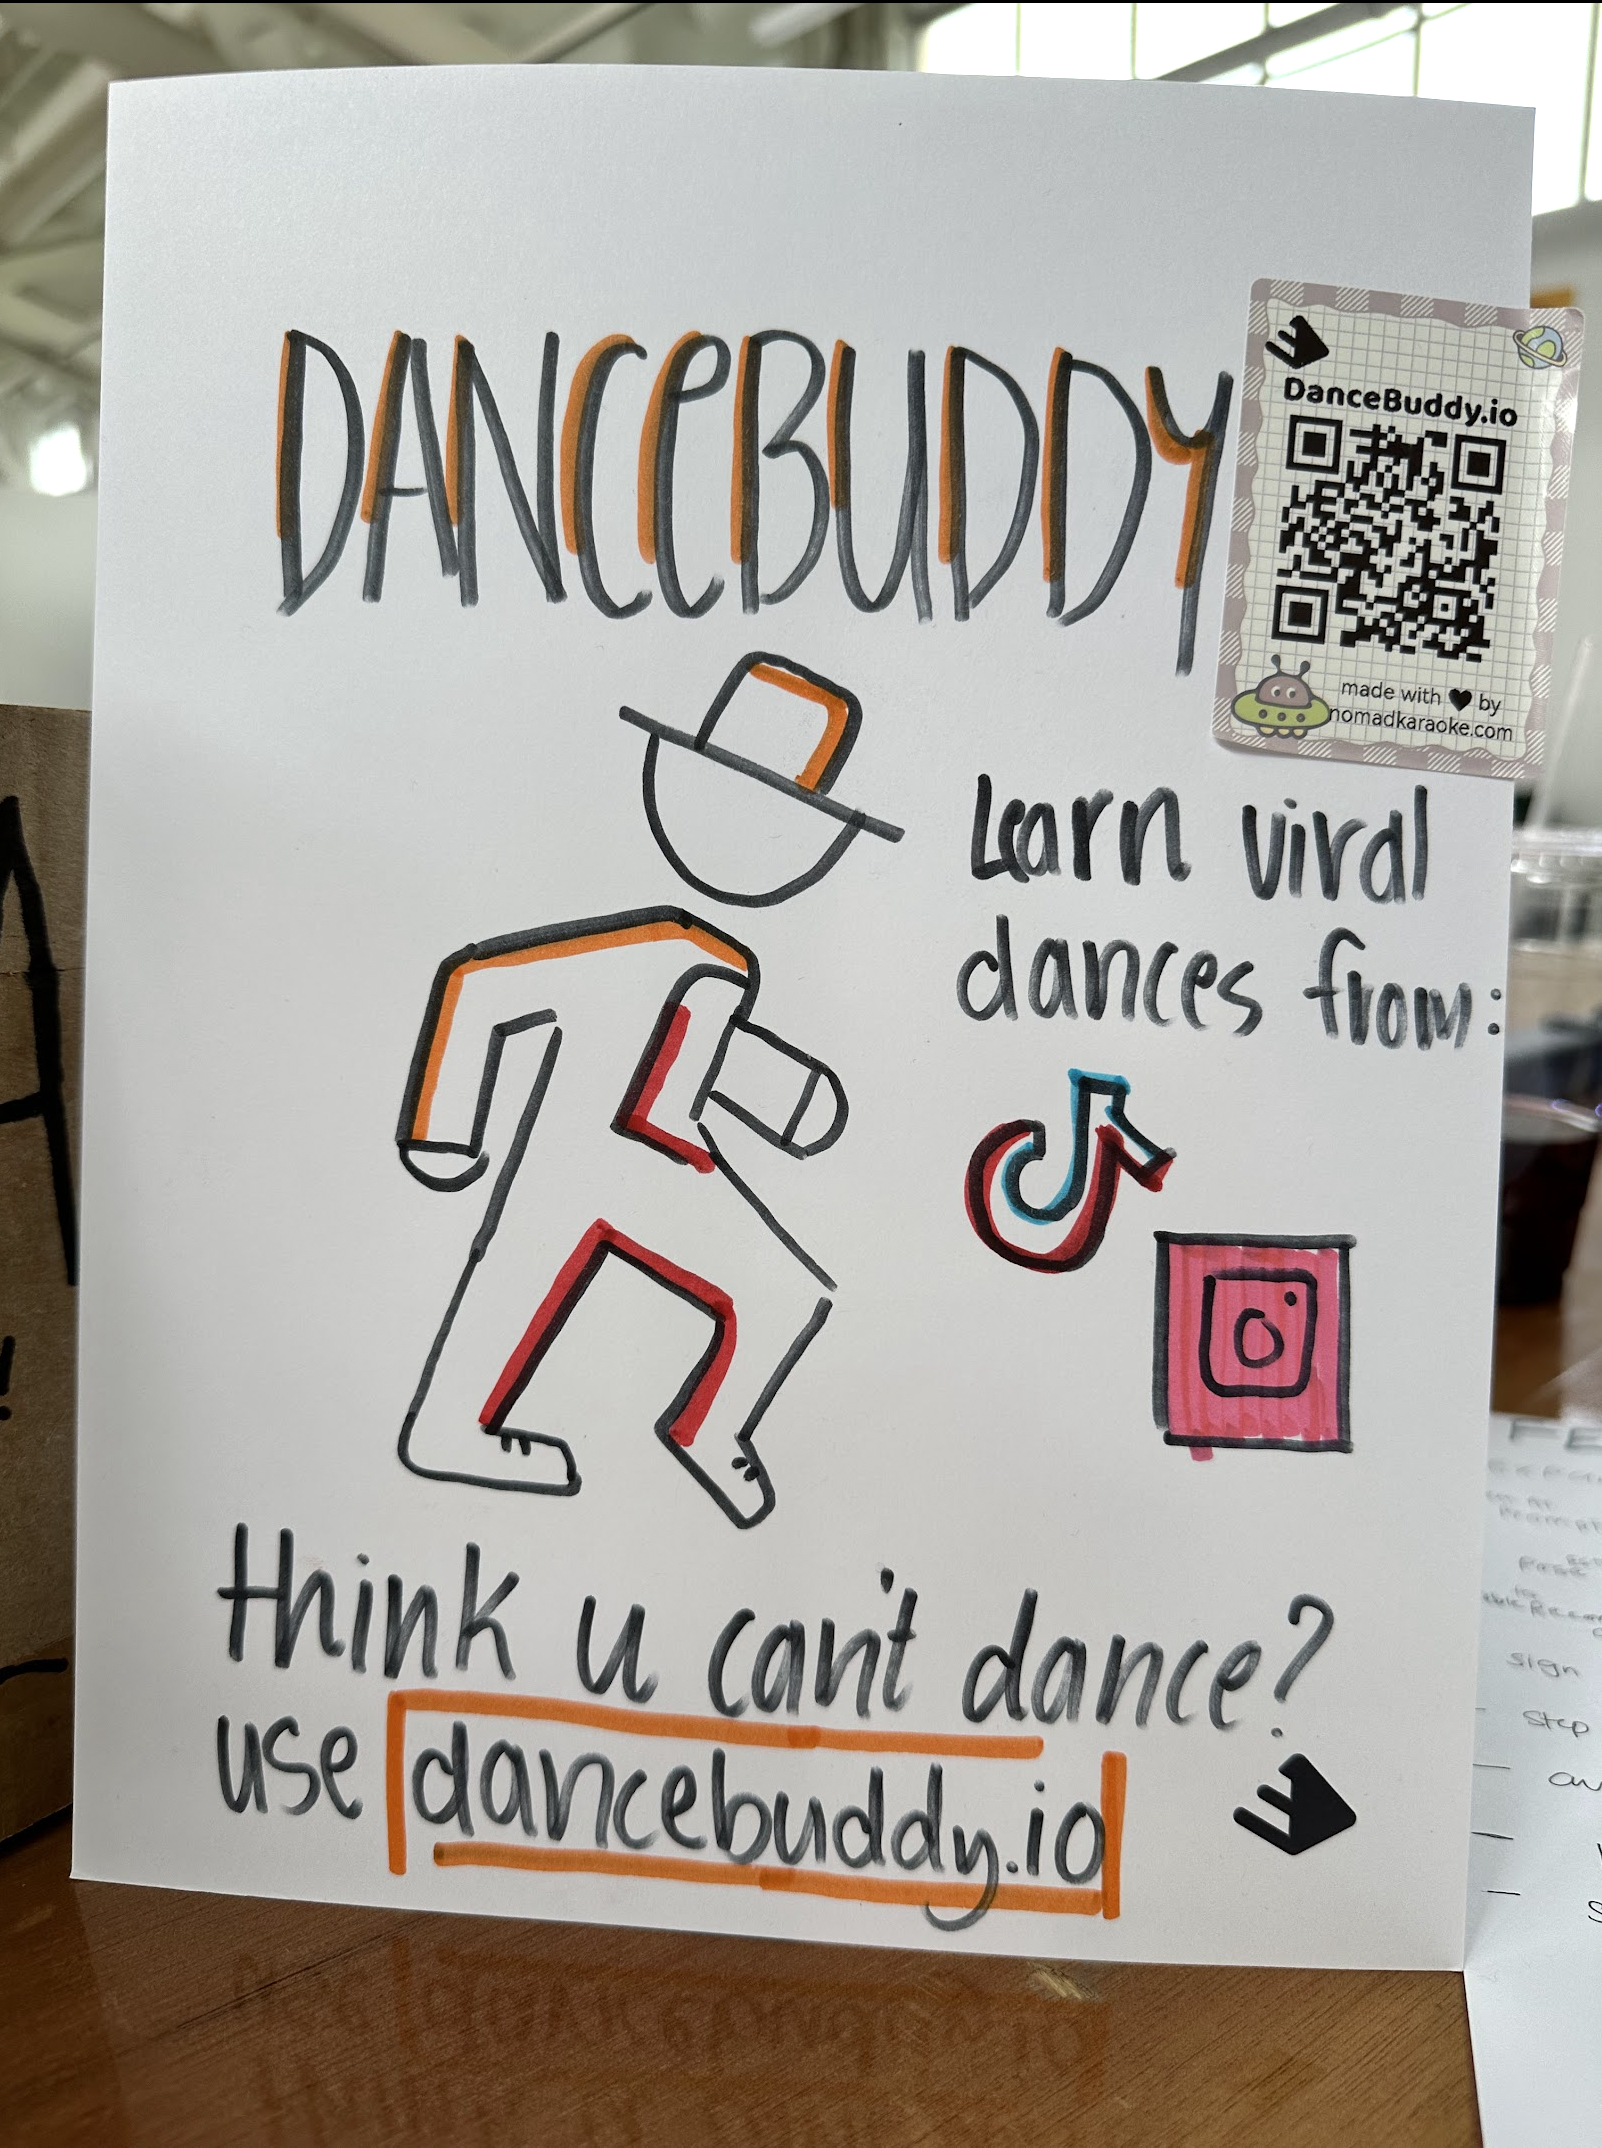 DANCEBUDDY
DanceBuddy.io
made with ♥ by
nomadkaraoke.com
Learn viral
dances from:
Think u can't dance?
use dancebuddy.io
A
!
FE
sign
step